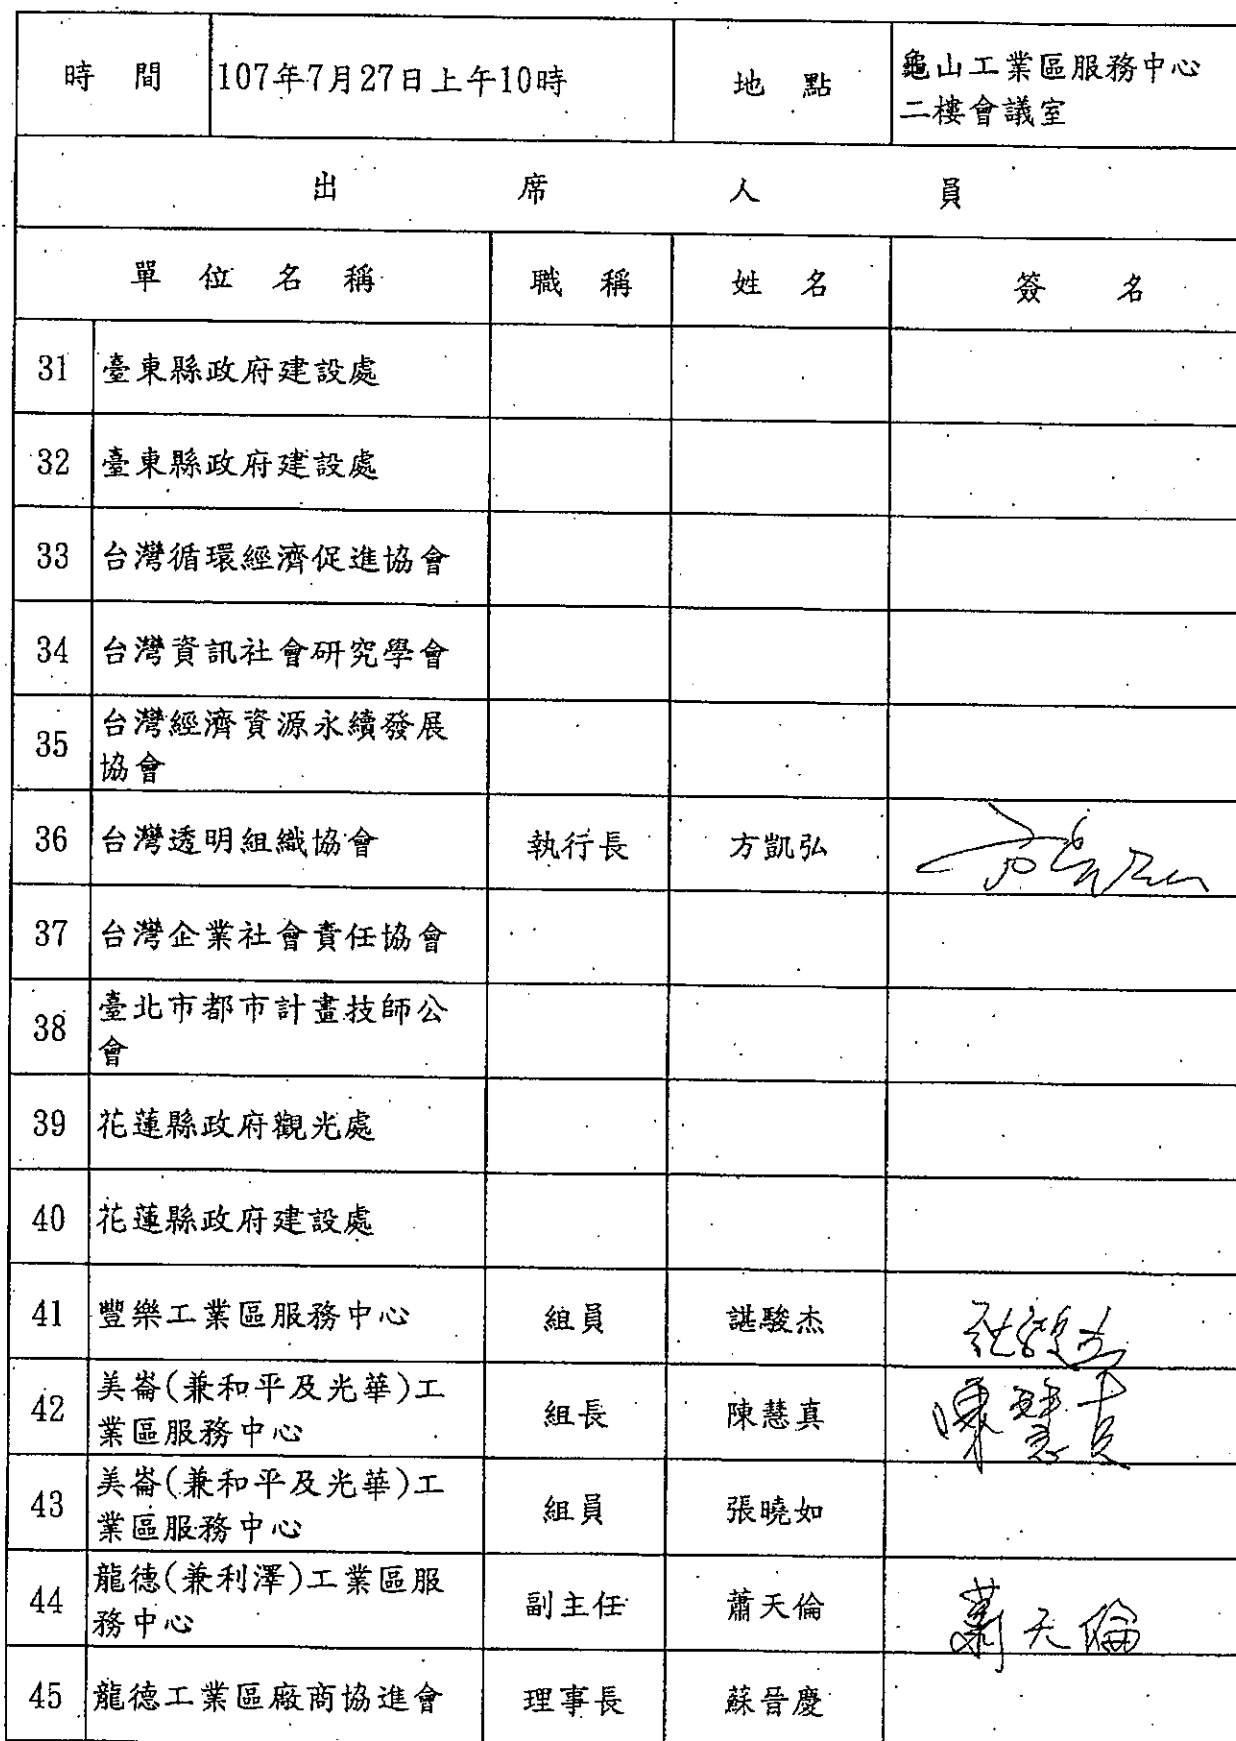 時 間 107年7月27日上午10時 地 點 龜山工業區服務中心
二樓會議室
出 席 人 員
單 位 名 稱 職 稱 姓 名 簽 名
31 臺東縣政府建設處
32 臺東縣政府建設處
33 台灣循環經濟促進協會
34 台灣資訊社會研究學會
35 台灣經濟資源永續發展
協會
36 台灣透明組織協會 執行長 方凱弘 方凱弘
37 台灣企業社會責任協會
38 臺北市都市計畫技師公
會
39 花蓮縣政府觀光處
40 花蓮縣政府建設處
41 豐樂工業區服務中心 組員 諶駿杰
42 美崙(兼和平及光華)工
業區服務中心 組長 陳慧真 陳慧真
43 美崙(兼和平及光華)工
業區服務中心 組員 張曉如
44 龍德(兼利澤)工業區服
務中心 副主任 蕭天倫 蕭天倫
45 龍德工業區廠商協進會 理事長 蘇晉慶